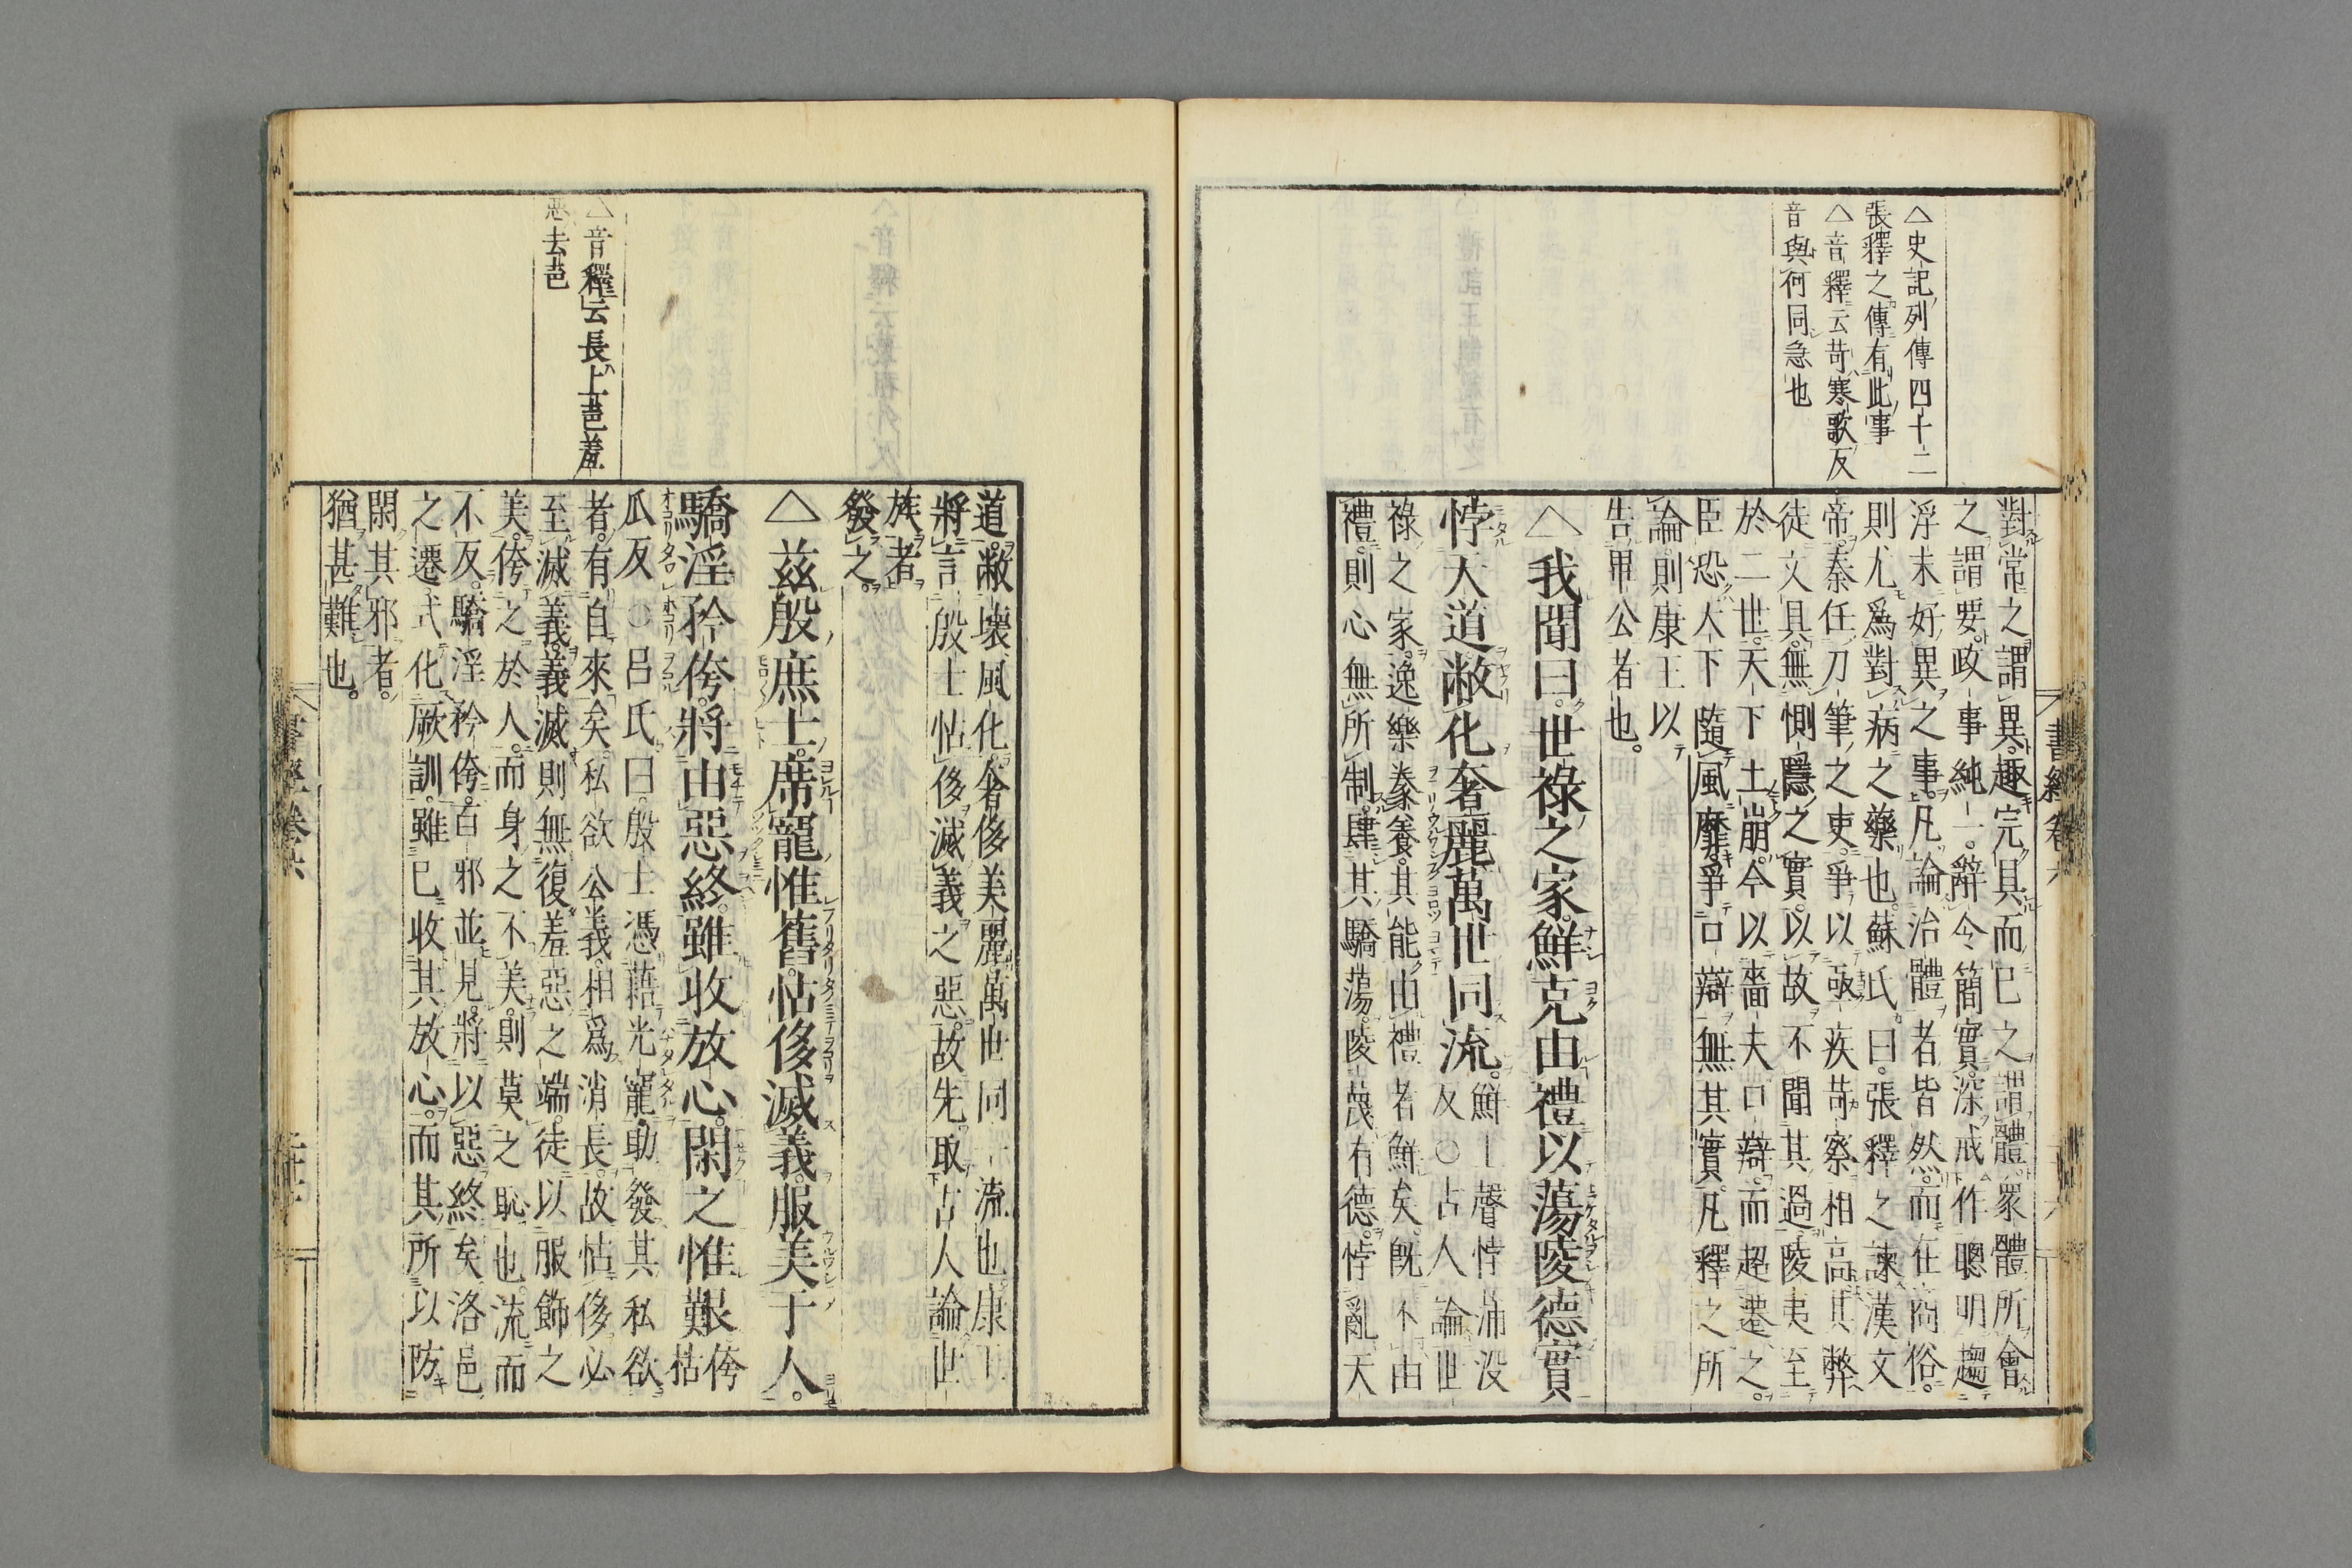 △史記列傳四十二
張釋之傳有此事
△音釋云苛寒歌反
音與何同急也
書經卷六
對常之謂異趣完具而已之謂體衆體所會
之謂要政事純一辭令簡實深戒作聰明趨
浮末好異之事凡論治體者皆然而在商俗
則尤爲對病之藥也蘇氏曰張釋之諫漢文
帝秦任刀筆之吏爭以亟疾苛察相高其弊
徒文具無惻隱之實以故不聞其過陵夷至
於二世天下土崩今以嗇夫口辯而超遷之
臣恐天下隨風靡爭口辯無其實凡釋之所
論則康王以
告畢公者也
△我聞曰世祿之家鮮克由禮以蕩陵德實
悖天道敝化奢麗萬世同流鮮上聲悖蒲没
反○古人論世
祿之家逸樂豢養其能由禮者鮮矣旣不由
禮則心無所制肆其驕蕩陵蔑有德悖亂天
道敝壞風化奢侈美麗萬世同一流也康王
將言殷士怙侈滅義之惡故先取古人論世
族者
發之
△茲殷庶士席寵惟舊怙侈滅義服美于人
驕淫矜侉將由惡終雖收放心閑之惟艱侉枯
瓜反○呂氏曰殷士憑藉光寵助發其私欲
者有自來矣私欲公義相爲消長故怙侈必
至滅義義滅則無復羞惡之端徒以服飾之
美侉之於人而身之不美則莫之恥也流而
不反驕淫矜侉百邪並見將以惡終矣洛邑
之遷式化厥訓雖已收其放心而其所以防
閑其邪者
猶甚難也
△音釋云長上邑羞
惡去邑
書經卷六